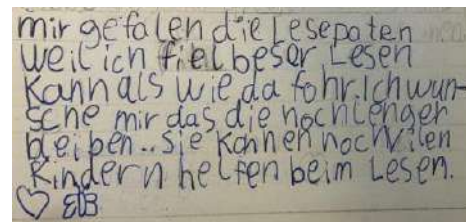 mir gefalen die Lesepaten
weil ich fiel beser Lesen
Kann als wie da fohr. Ich wün-
sche mir das die noch lenger
bleiben.. sie Kannen noch vilen
Kindern helfen beim Lesen.